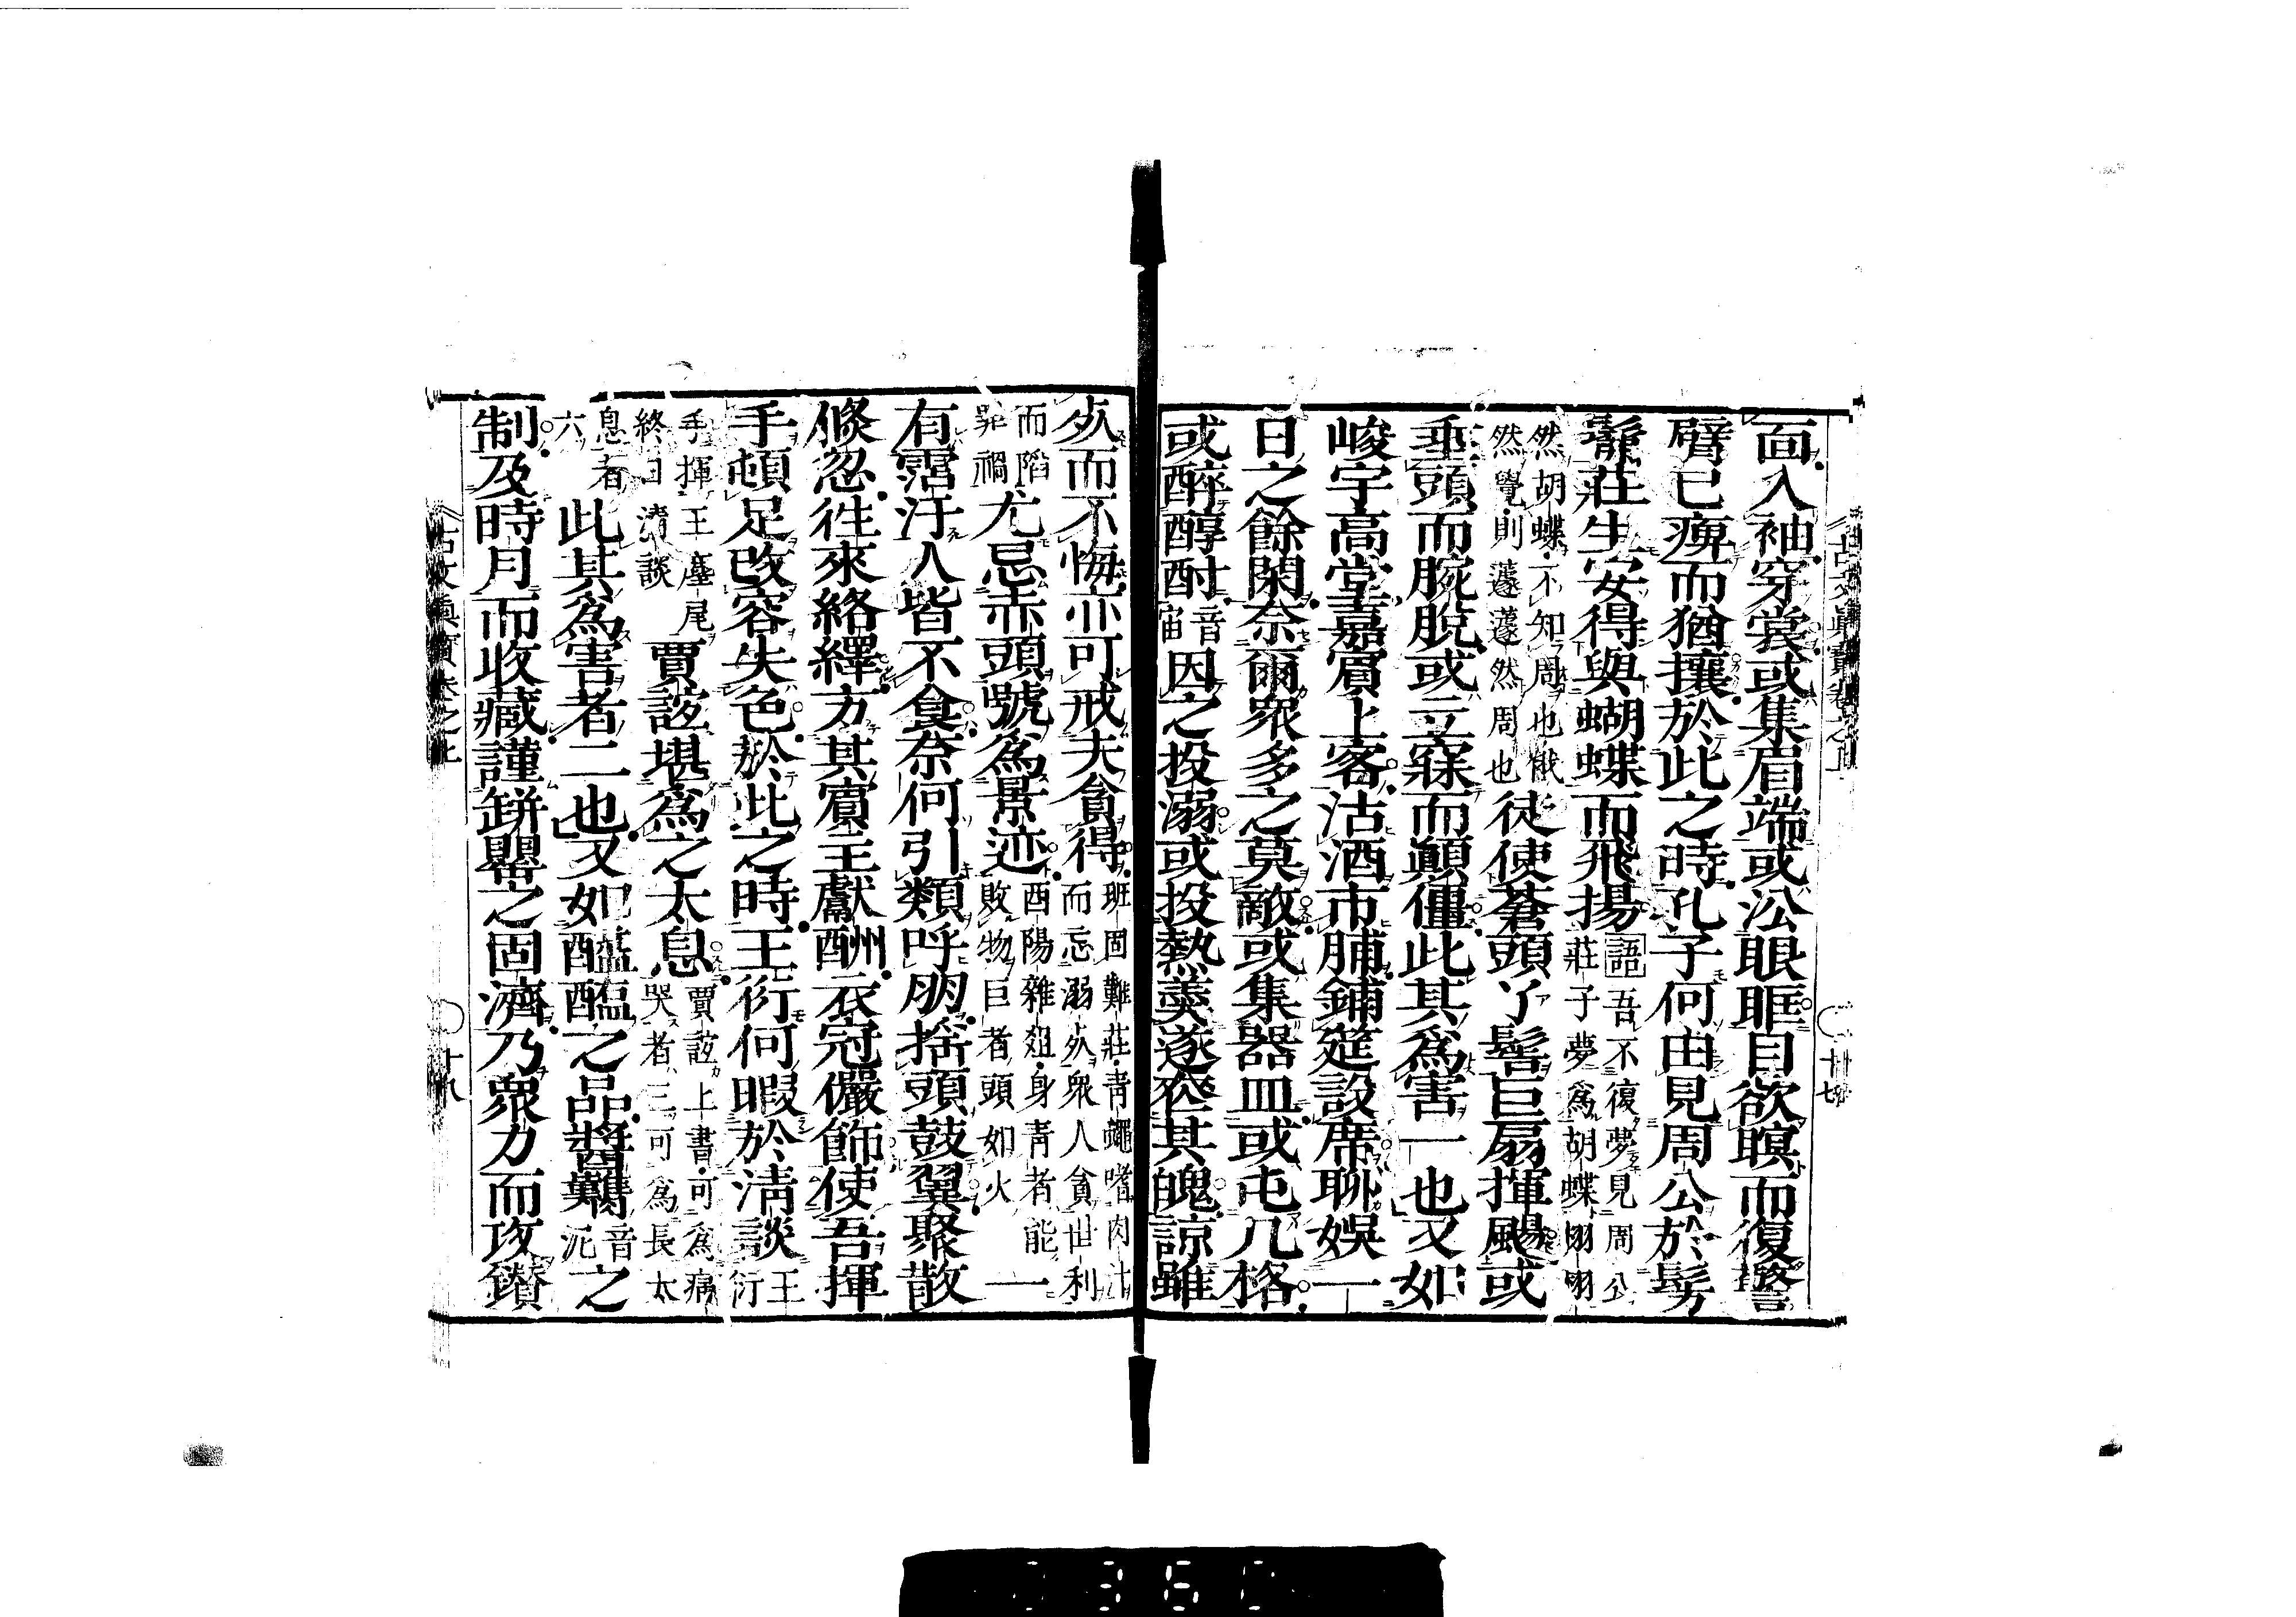 面入袖穿裳或集眉端或沿眼眶目欲瞑而復警
臂已痺而猶攘於此之時孔子何由見周公於髣
髴莊生安得與蝴蝶而飛揚
語吾不復夢見周公
莊子夢爲胡蝶栩栩
然胡蝶不知周也俄
然覺則蘧蘧然周也
徒使蒼頭丫髻巨扇揮颺或
垂頭而腕脫或立寐而顚僵此其爲害一也又如
峻宇高堂嘉賓上客沽酒市脯鋪筵設席聊娛一
日之餘閑奈爾眾多之莫敵或集器皿或屯几格
或醉醇酎
音
宙
因之投溺或投熱羹遂喪其魄諒雖
死而不悔亦可戒夫貪得
班固難莊靑蠅嗜肉汁
而忘溺死眾人貪世利
而陷
罪禍
尤忌赤頭號爲景迹
酉陽雜俎身青者能
敗物巨者頭如火
一
有霑汙人皆不食奈何引類呼朋搖頭鼓翼聚散
倐忽徃來絡繹方其賓主獻酬衣冠儼飾使吾揮
手頓足改容失色於此之時王衍何暇於清談
王
衍
手揮玉麈尾
終日清談
賈誼堪爲之太息
賈誼上書可爲痛
哭者三可爲長太
息者
六
此其爲害者二也又如醯醢之品醬臡
音
泥
之
制及時月而收藏謹缾罌之固濟乃眾力而攻鑚